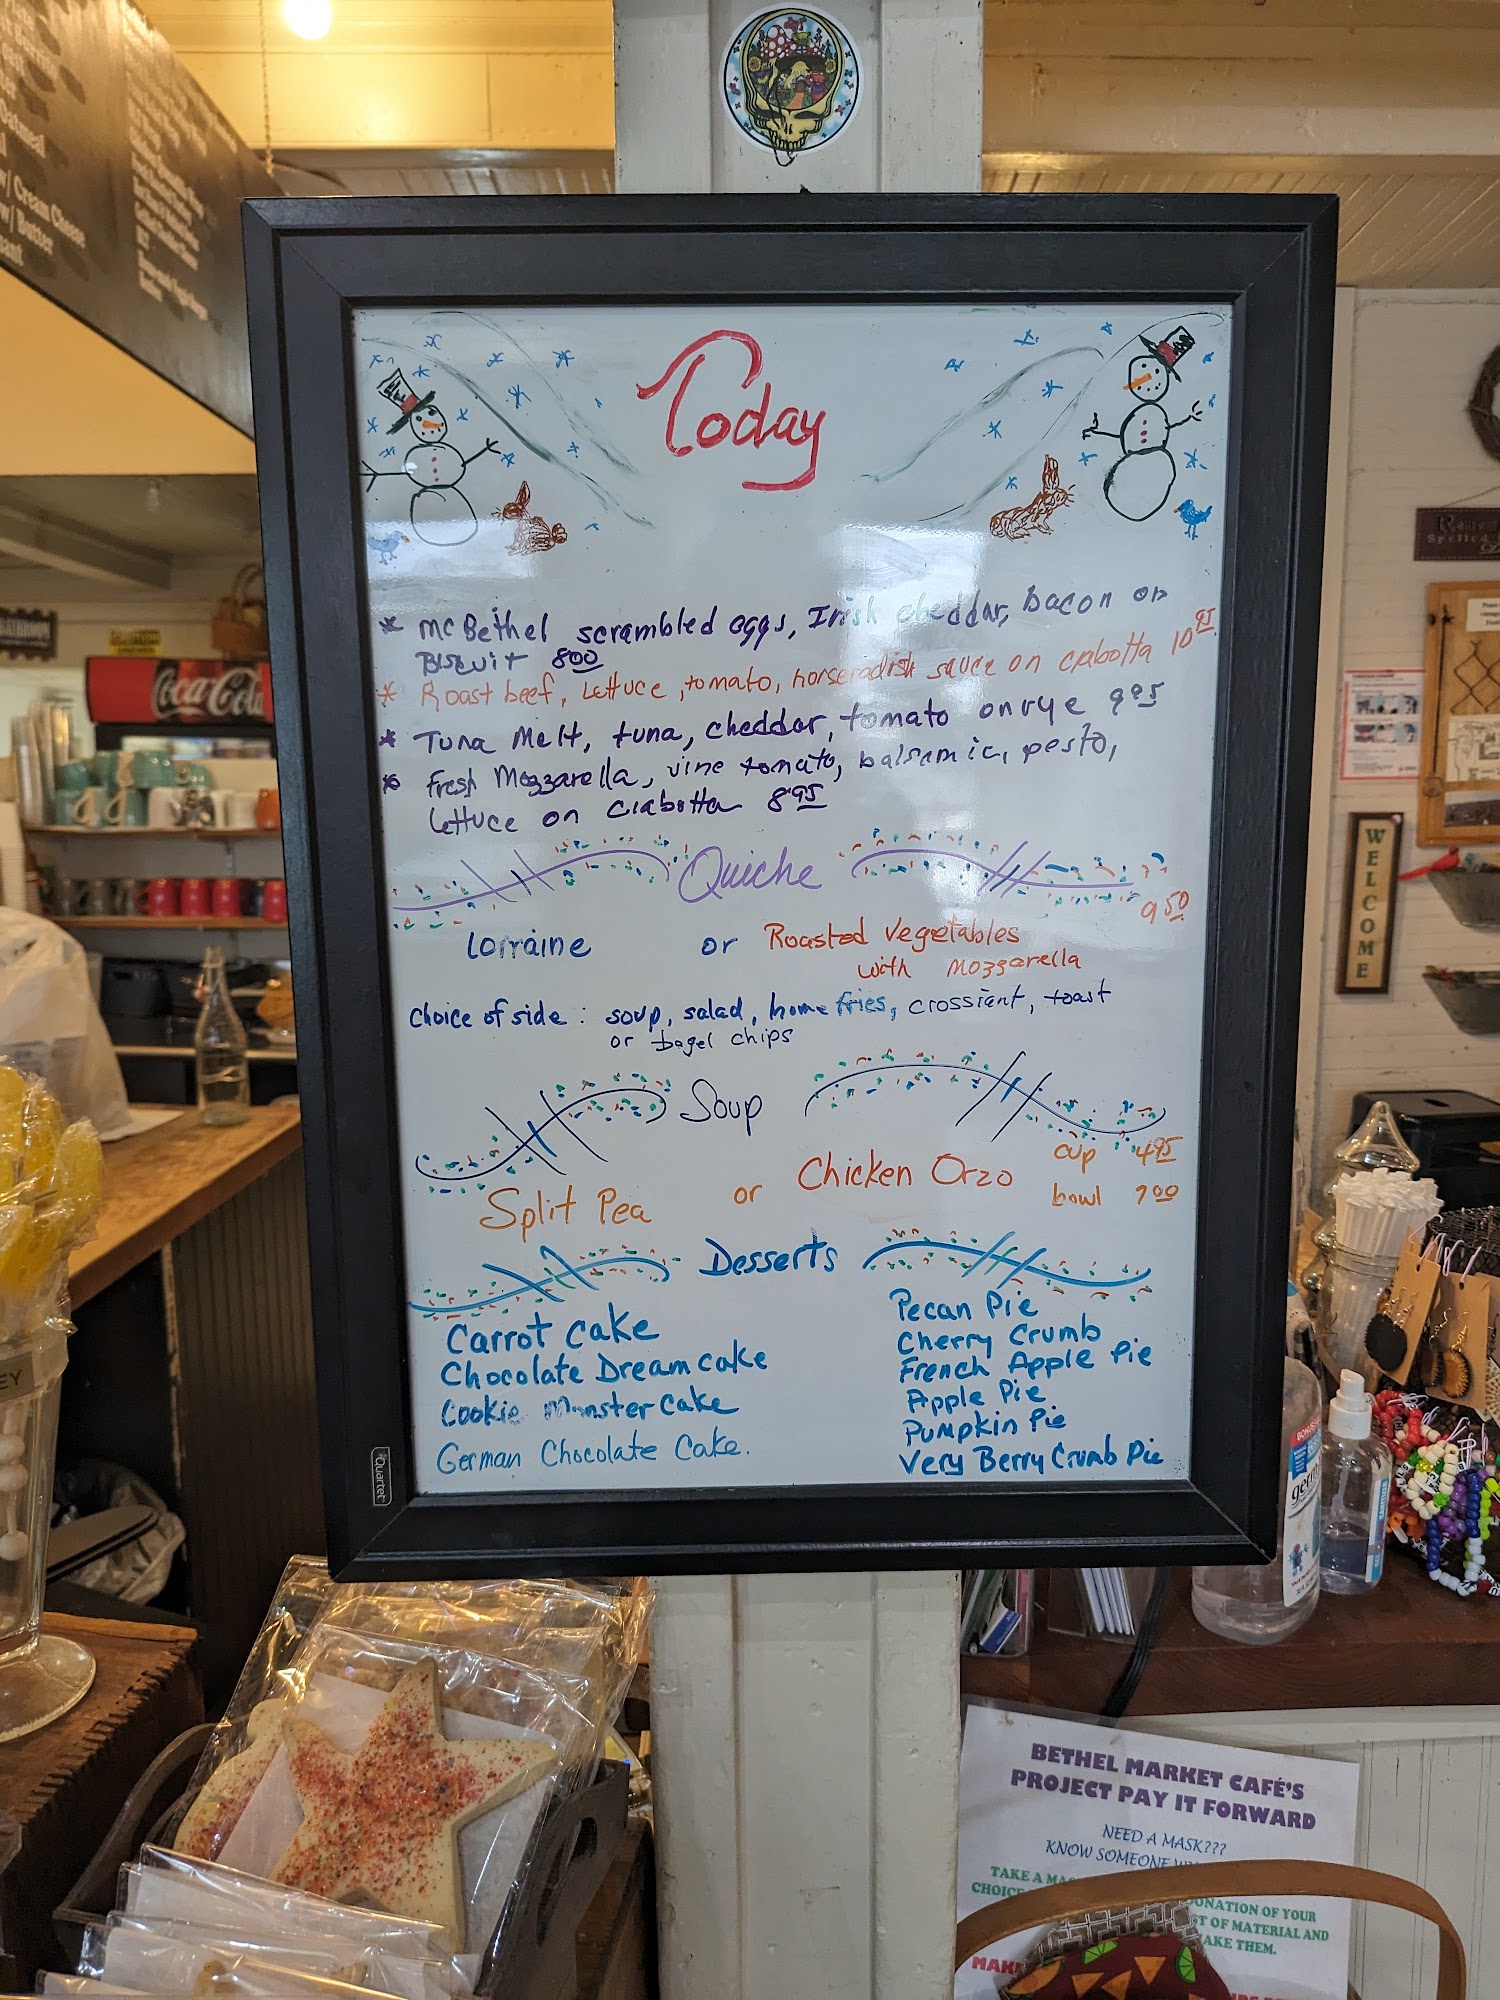 Oatmeal
w/ Cream Cheese
w/ Butter
Coca-Cola
Today
* McBethel scrambled eggs, Irish cheddar, bacon on
Biscuit 8 00
* Roast beef, Lettuce, tomato, horseradish sauce on ciabotta 10 95
* Tuna Melt, tuna, cheddar, tomato on rye 9 95
* Fresh Mozzarella, vine tomato, balsamic, pesto,
lettuce on ciabotta 8 95
Quiche
9 50
Lorraine or Roasted Vegetables
with Mozzarella
choice of side : soup, salad, home fries, crossiant, toast
or bagel chips
Soup
cup 4 95
Split Pea or Chicken Orzo
bowl 7 00
Desserts
Carrot Cake
Chocolate Dream cake
Cookie Monster Cake
German Chocolate Cake.
Pecan Pie
Cherry Crumb
French Apple Pie
Apple Pie
Pumpkin Pie
Very Berry Crumb Pie
Quartet
WELCOME
BETHEL MARKET CAFÉ'S
PROJECT PAY IT FORWARD
NEED A MASK???
KNOW SOMEONE
TAKE A
DONATION OF YOUR
OF MATERIAL AND
THEM.